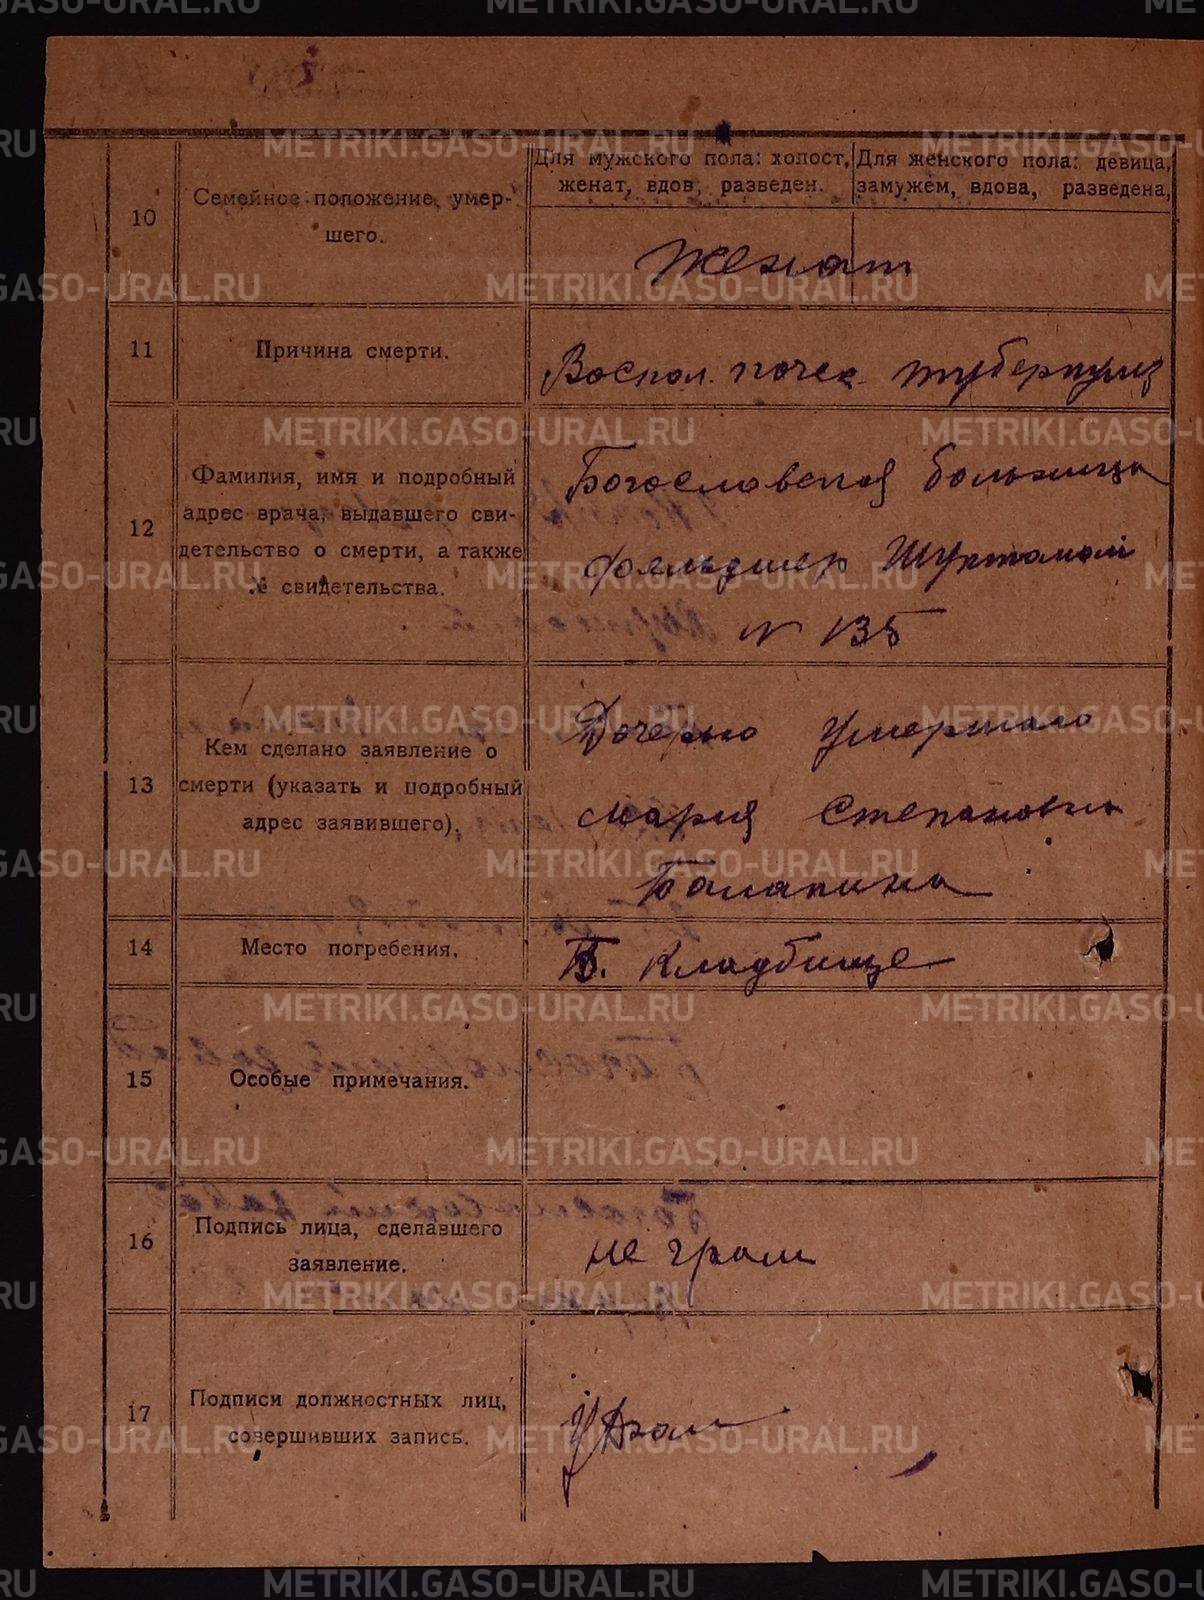 Для мужского пола: холост, женат, вдов, разведен.
Для женского пола: девица, замужем, вдова, разведена,
10
Семейное положение умер-
шего.
Женат
11
Причина смерти.
Воспал. почек туберкулез
12
Фамилия, имя и подробный
адрес врача, выдавшего сви-
детельство о смерти, а также
№ свидетельства.
Богословская больница
фельдшер
N 135
13
Кем сделано заявление о
смерти (указать и подробный
адрес заявившего).
Дочерью умершаго
Мария Степановна
14
Место погребения.
Б. Кладбище
15
Особые примечания.
16
Подпись лица, сделавшего
заявление.
не грам
17
Подписи должностных лиц,
совершивших запись.
METRIKI.GASO-URAL.RU